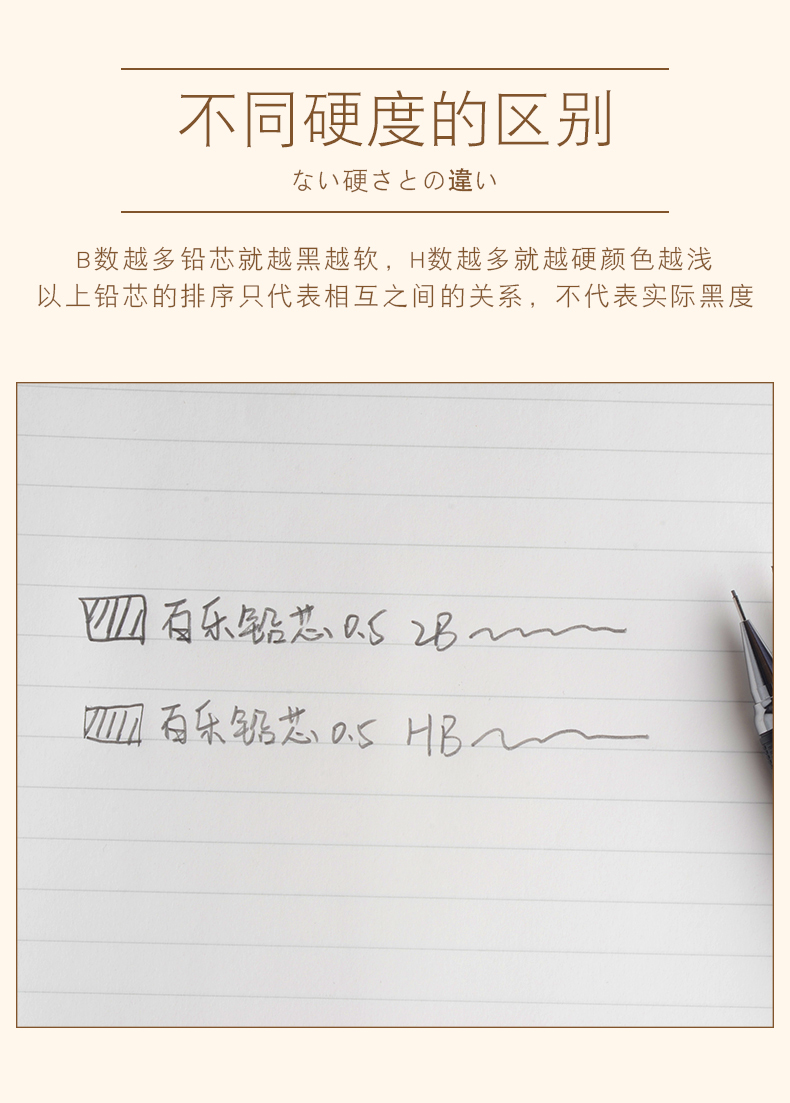 不同硬度的区别
ない硬さとの違い
B数越多铅芯就越黑越软，H数越多就越硬颜色越浅
以上铅芯的排序只代表相互之间的关系，不代表实际黑度
百乐铅芯 0.5 2B
百乐铅芯 0.5 HB